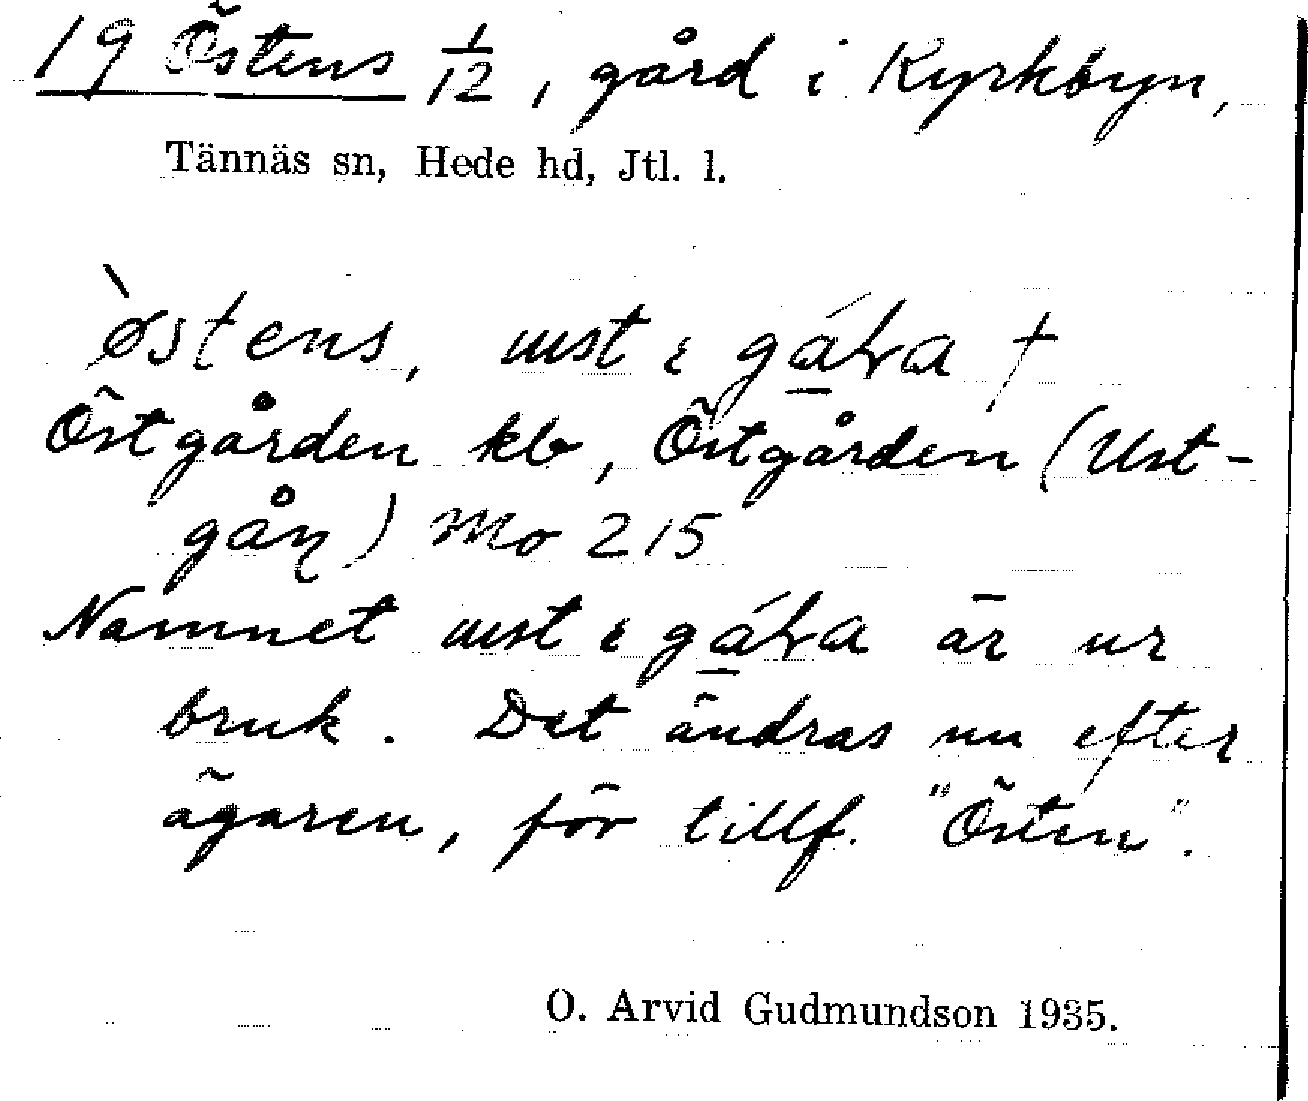 19 Östens 1/12, gård i Kyrkbyn,
Tännäs sn, Hede hd, Jtl. l.
òstens, ust i gáɽa †
Östgården kb, Östgården (Ust-
gån) Mo 215
Namnet ust i gáɽa är ur
bruk. Det ändras nu efter
ägaren, för tillf. "Östen".
O. Arvid Gudmundson 1935.